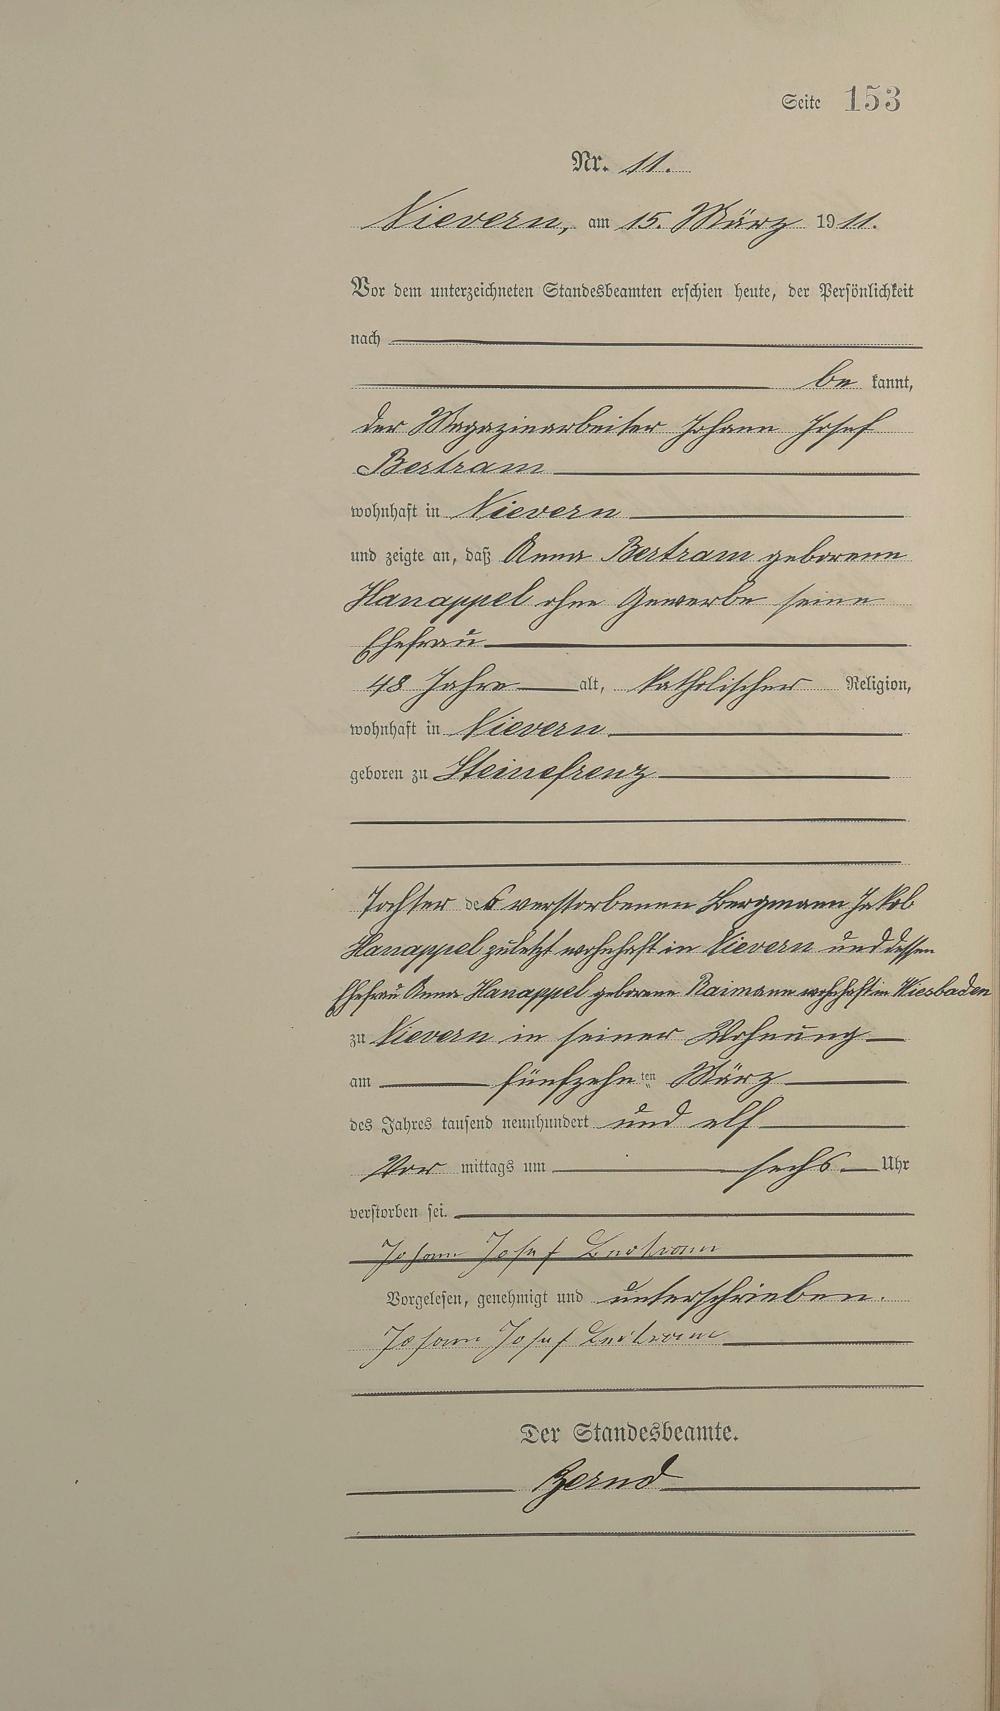 Seite 153
Nr. 11.
Nievern, am 15. März 1911.
Vor dem unterzeichneten Standesbeamten erschien heute, der Persönlichkeit
nach
be kannt,
der Magazinarbeiter Johann Josef
Bertram
wohnhaft in Nievern
und zeigte an, daß Anna Bertram geborene
Hanappel ohne Gewerbe seine
Ehefrau
48 Jahre alt, katholischer Religion,
wohnhaft in Nievern
geboren zu Steinefrenz
Tochter des verstorbenen Bergmann Jakob
Hanappel zuletzt wohnhaft in Nievern und dessen
Ehefrau Anna Hanappel geborene Raimann wohnhaft in Wiesbaden
zu Nievern in seiner Wohnung
am fünfzehnten März
des Jahres tausend neunhundert und elf
Vor mittags um sechs Uhr
verstorben sei.
Johann Josef Bertram
Vorgelesen, genehmigt und unterschrieben.
Johann Josef Bertram
Der Standesbeamte.